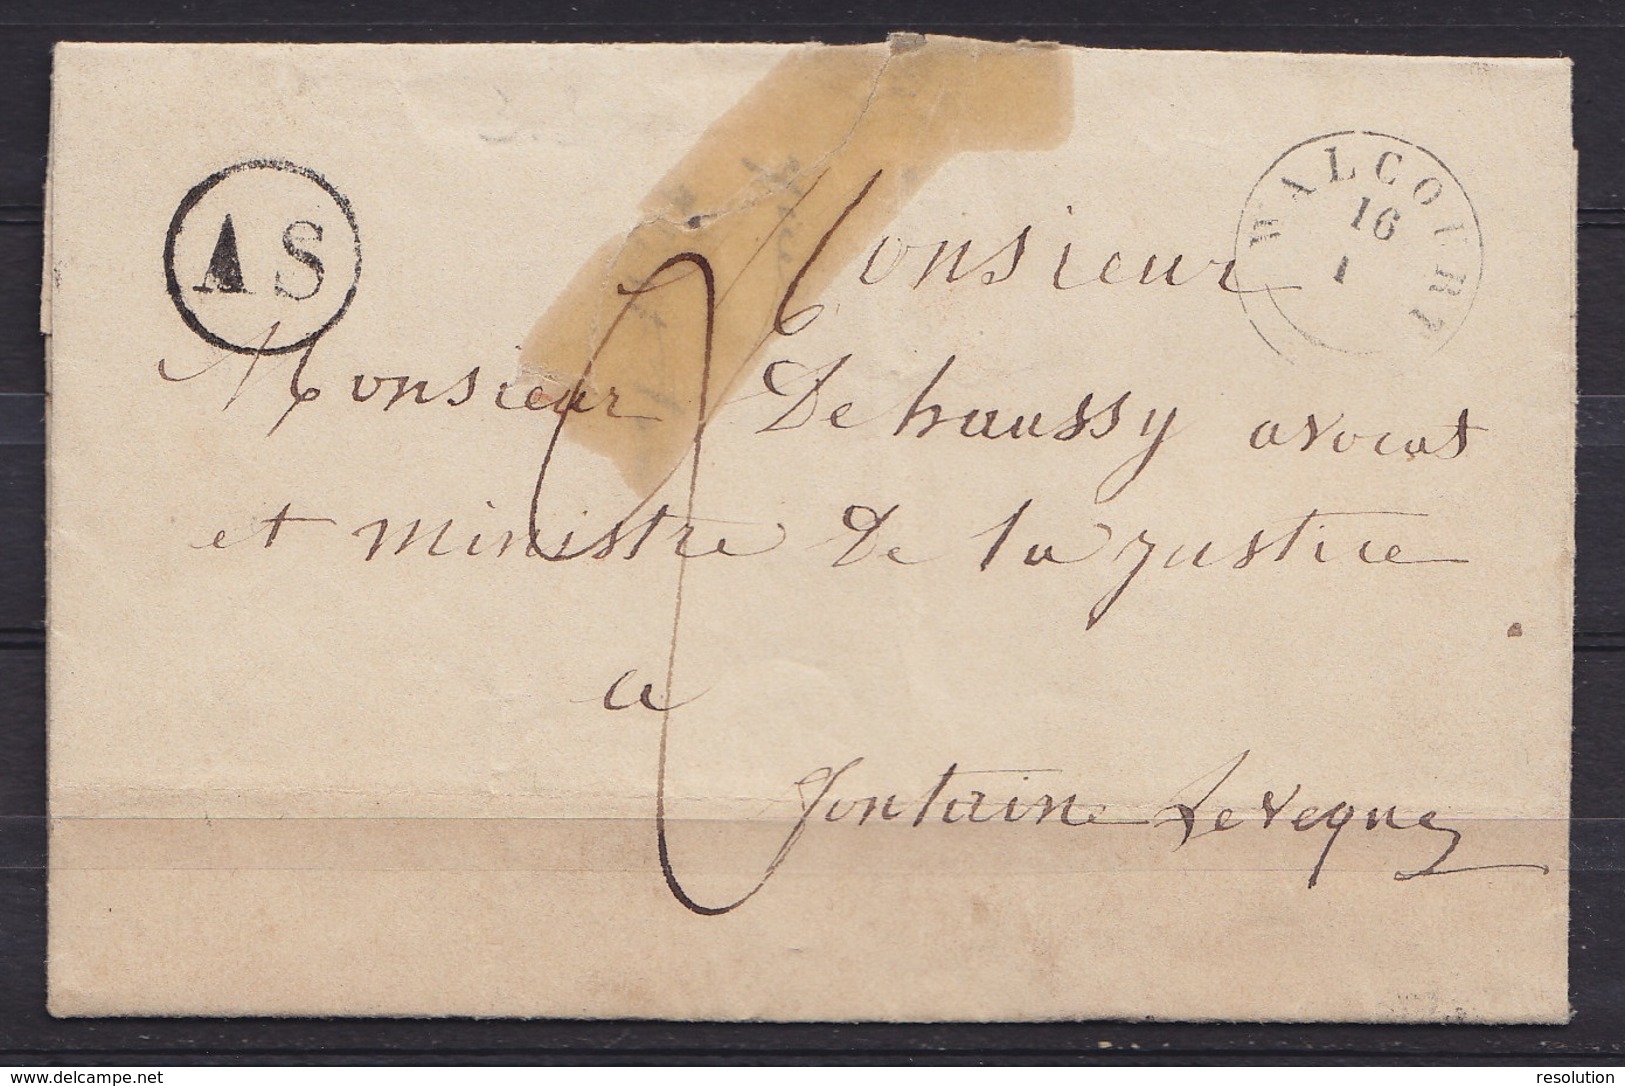 WALCOURT
16
1
AS
Monsieur
Monsieur De haussy avocat
et ministre De la justice
a
fontaine Leveque
delcampe.net
resolution